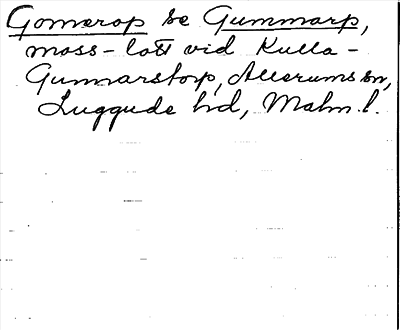 Gomerop se Gummarp,
moss-lott vid Kulla-
Gunnarstorp, Allerums sn,
Luggude hd, Malm. l.